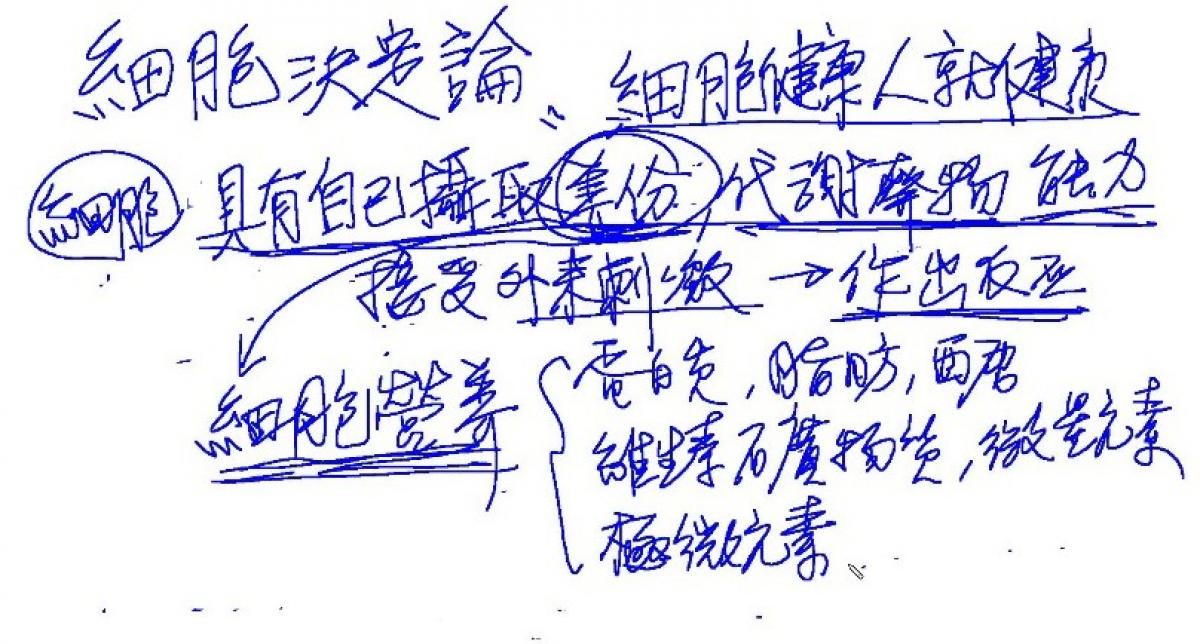 細胞決定論 細胞健康人就健康
細胞 具有自己攝取養份,代謝廢物能力
接受外來刺激→作出反应
細胞營养 蛋白质,脂肪,西唐
維生素 礦物质,微量元素
極微元素